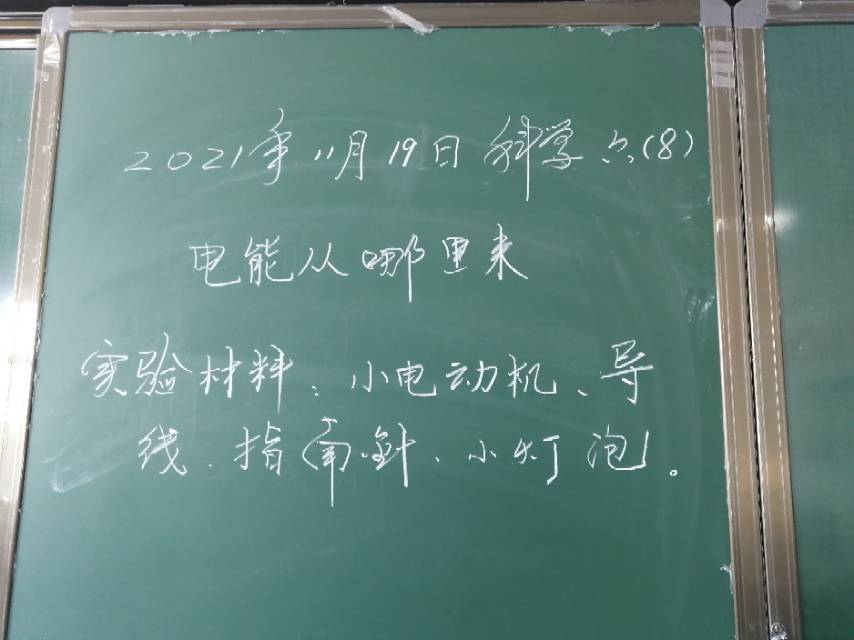 2021年11月19日 科学 六(8)
电能从哪里来
实验材料:小电动机、导
线、指南針、小灯泡。